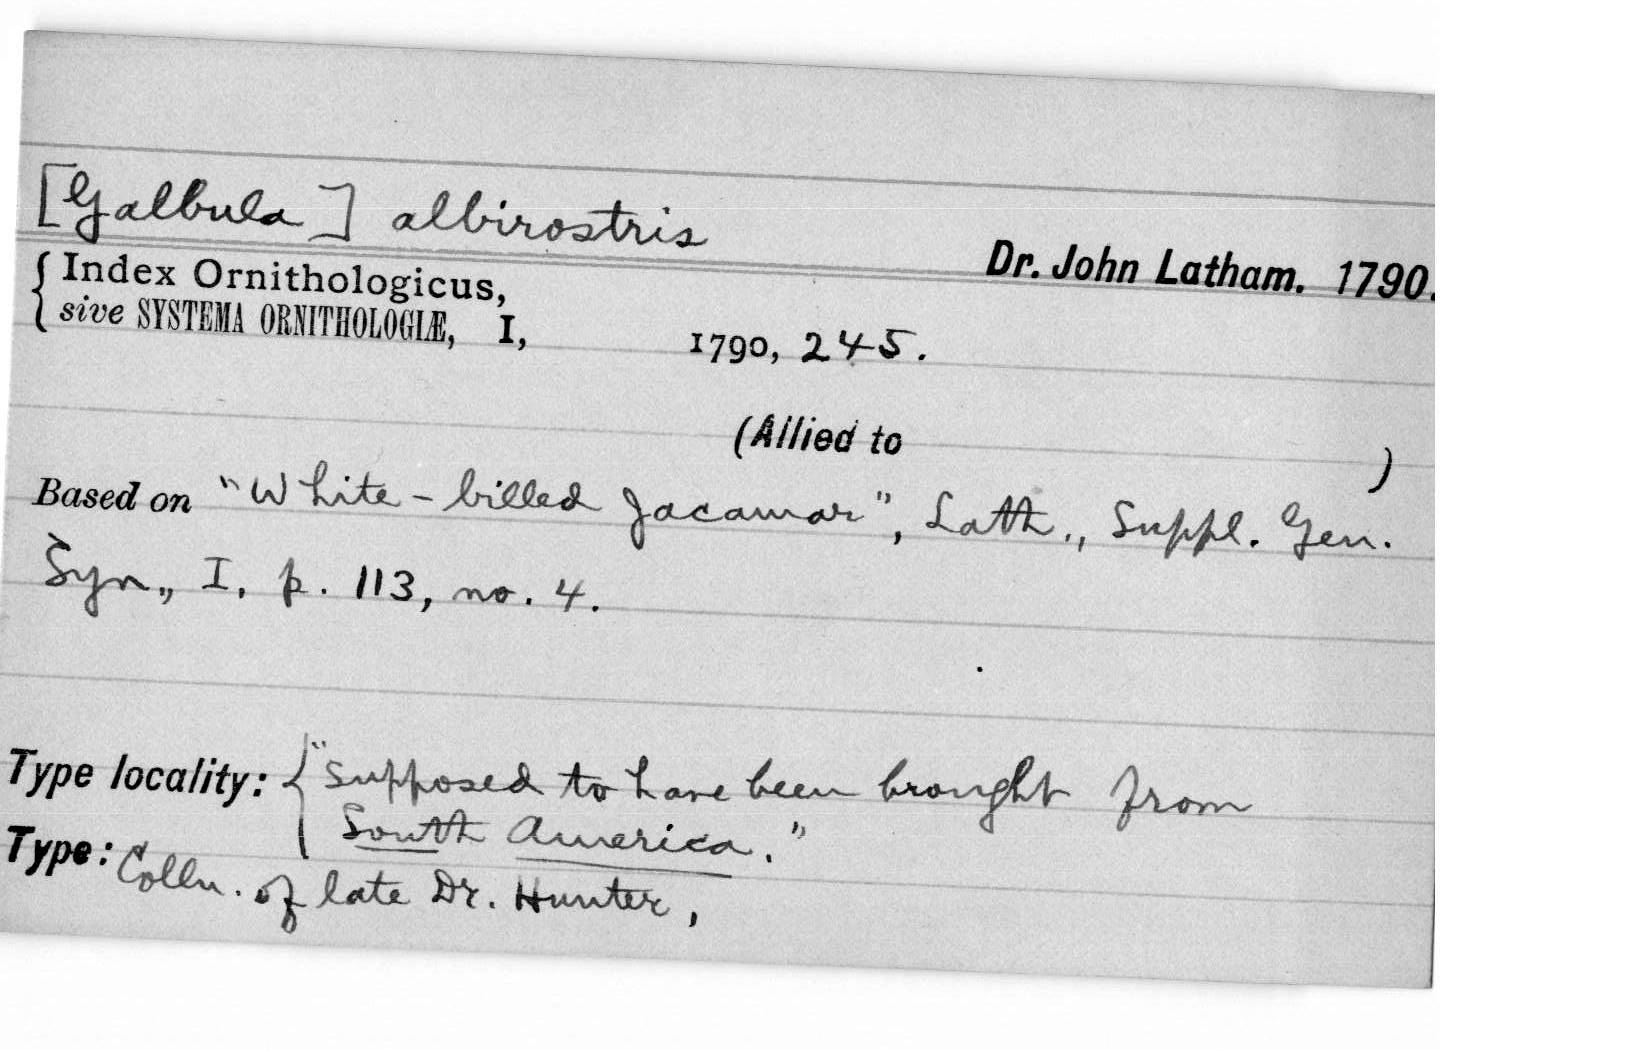 [Galbula] albirostris
Dr. John Latham. 1790.
{ Index Ornithologicus,
sive SYSTEMA ORNITHOLOGIÆ, I, 1790, 245.
(Allied to )
Based on "White-billed Jacamar", Lath., Suppl. Gen.
Syn., I, p. 113, no. 4.
Type locality: { "supposed to have been brought from
South America."
Type: Colln. of late Dr. Hunter,